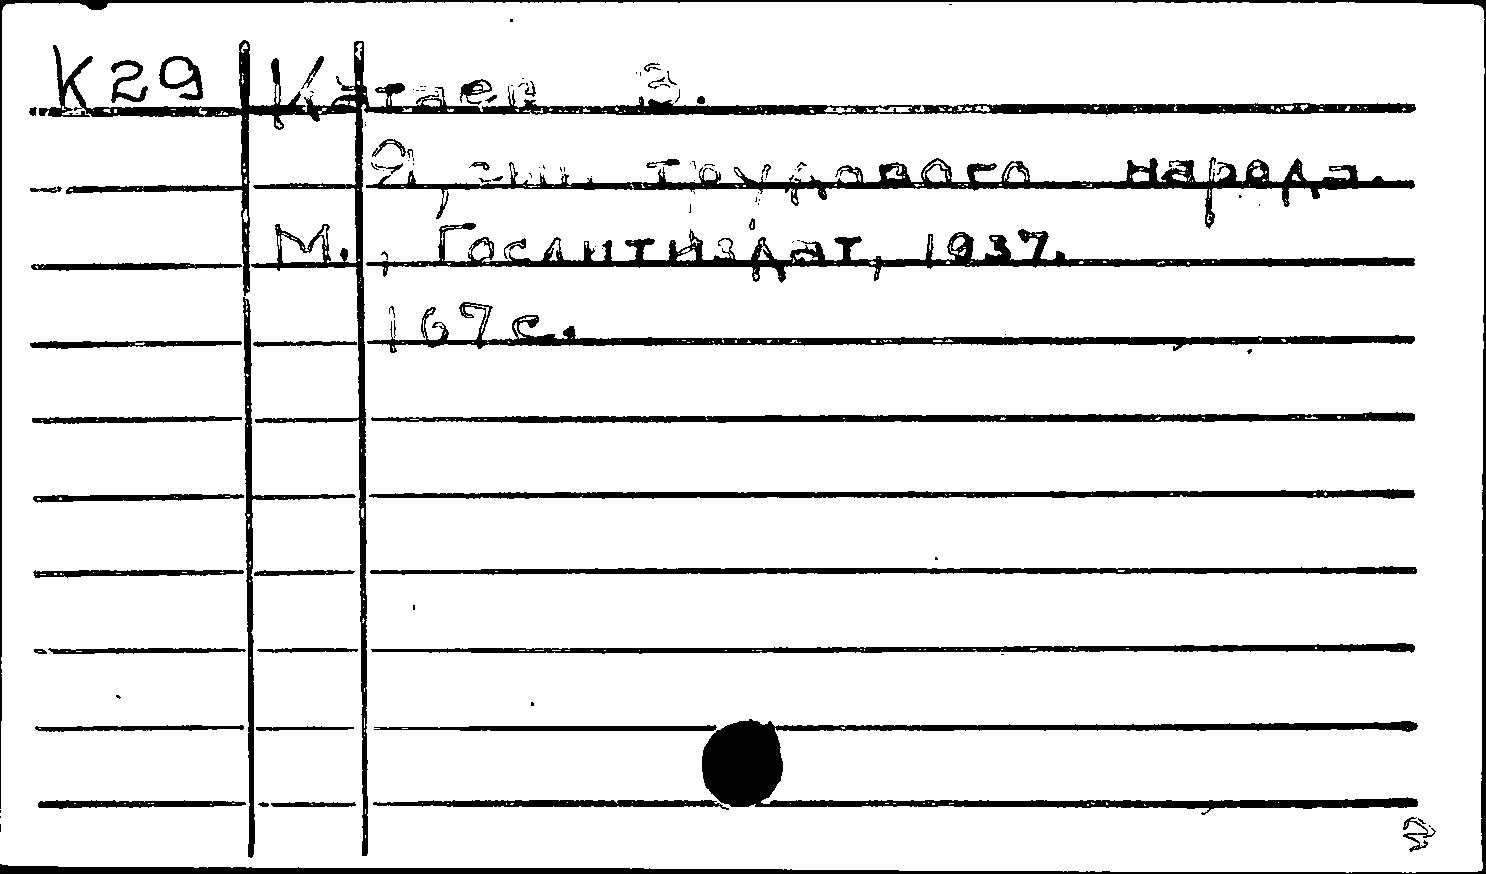 К29 Катаев В.
Я, сын трудового народа.
М., Гослитиздат, 1937.
167 с.